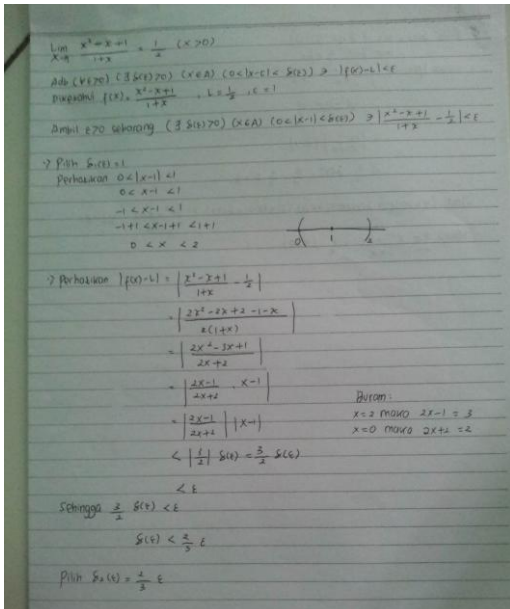 Lim x→1 x²-x+1 / 1+x = 1/2 (x>0)
Adb (∀ε>0) (∃ δ(ε)>0) (x∈A) (0<|x-c|< δ(ε)) ⇒ |f(x)-L|<ε
Diketahui f(x) = x²-x+1 / 1+x , L = 1/2 , c = 1
Ambil ε>0 sebarang (∃ δ(ε)>0) (x∈A) (0<|x-1|<δ(ε)) ⇒ |x²-x+1 / 1+x - 1/2| < ε
→ Pilih δ₁(ε) = 1
Perhatikan 0<|x-1|<1
0< x-1 <1
-1 < x-1 < 1
-1+1 < x-1+1 < 1+1
0 < x < 2
0 1 2
→ Perhatikan |f(x)-L| = |x²-x+1 / 1+x - 1/2|
= |2x²-2x+2-1-x / 2(1+x)|
= |2x²-3x+1 / 2x+2|
= |2x-1 / 2x+2 . x-1|
= |2x-1 / 2x+2| |x-1|
Buram :
x=2 maka 2x-1 = 3
x=0 maka 2x+2 = 2
< |3/2| δ(ε) = 3/2 δ(ε)
< ε
Sehingga 3/2 δ(ε) < ε
δ(ε) < 2/3 ε
Pilih δ₂(ε) = 2/3 ε